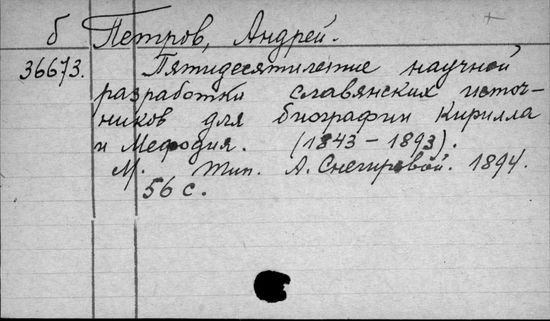 б Петров, Андрей.
36673. Пятидесятилетие научной
разработки славянских источ-
ников для биографии Кирилла
и Мефодия. (1843 - 1893).
М. Тип. А. Снегиревой. 1894.
56 с.